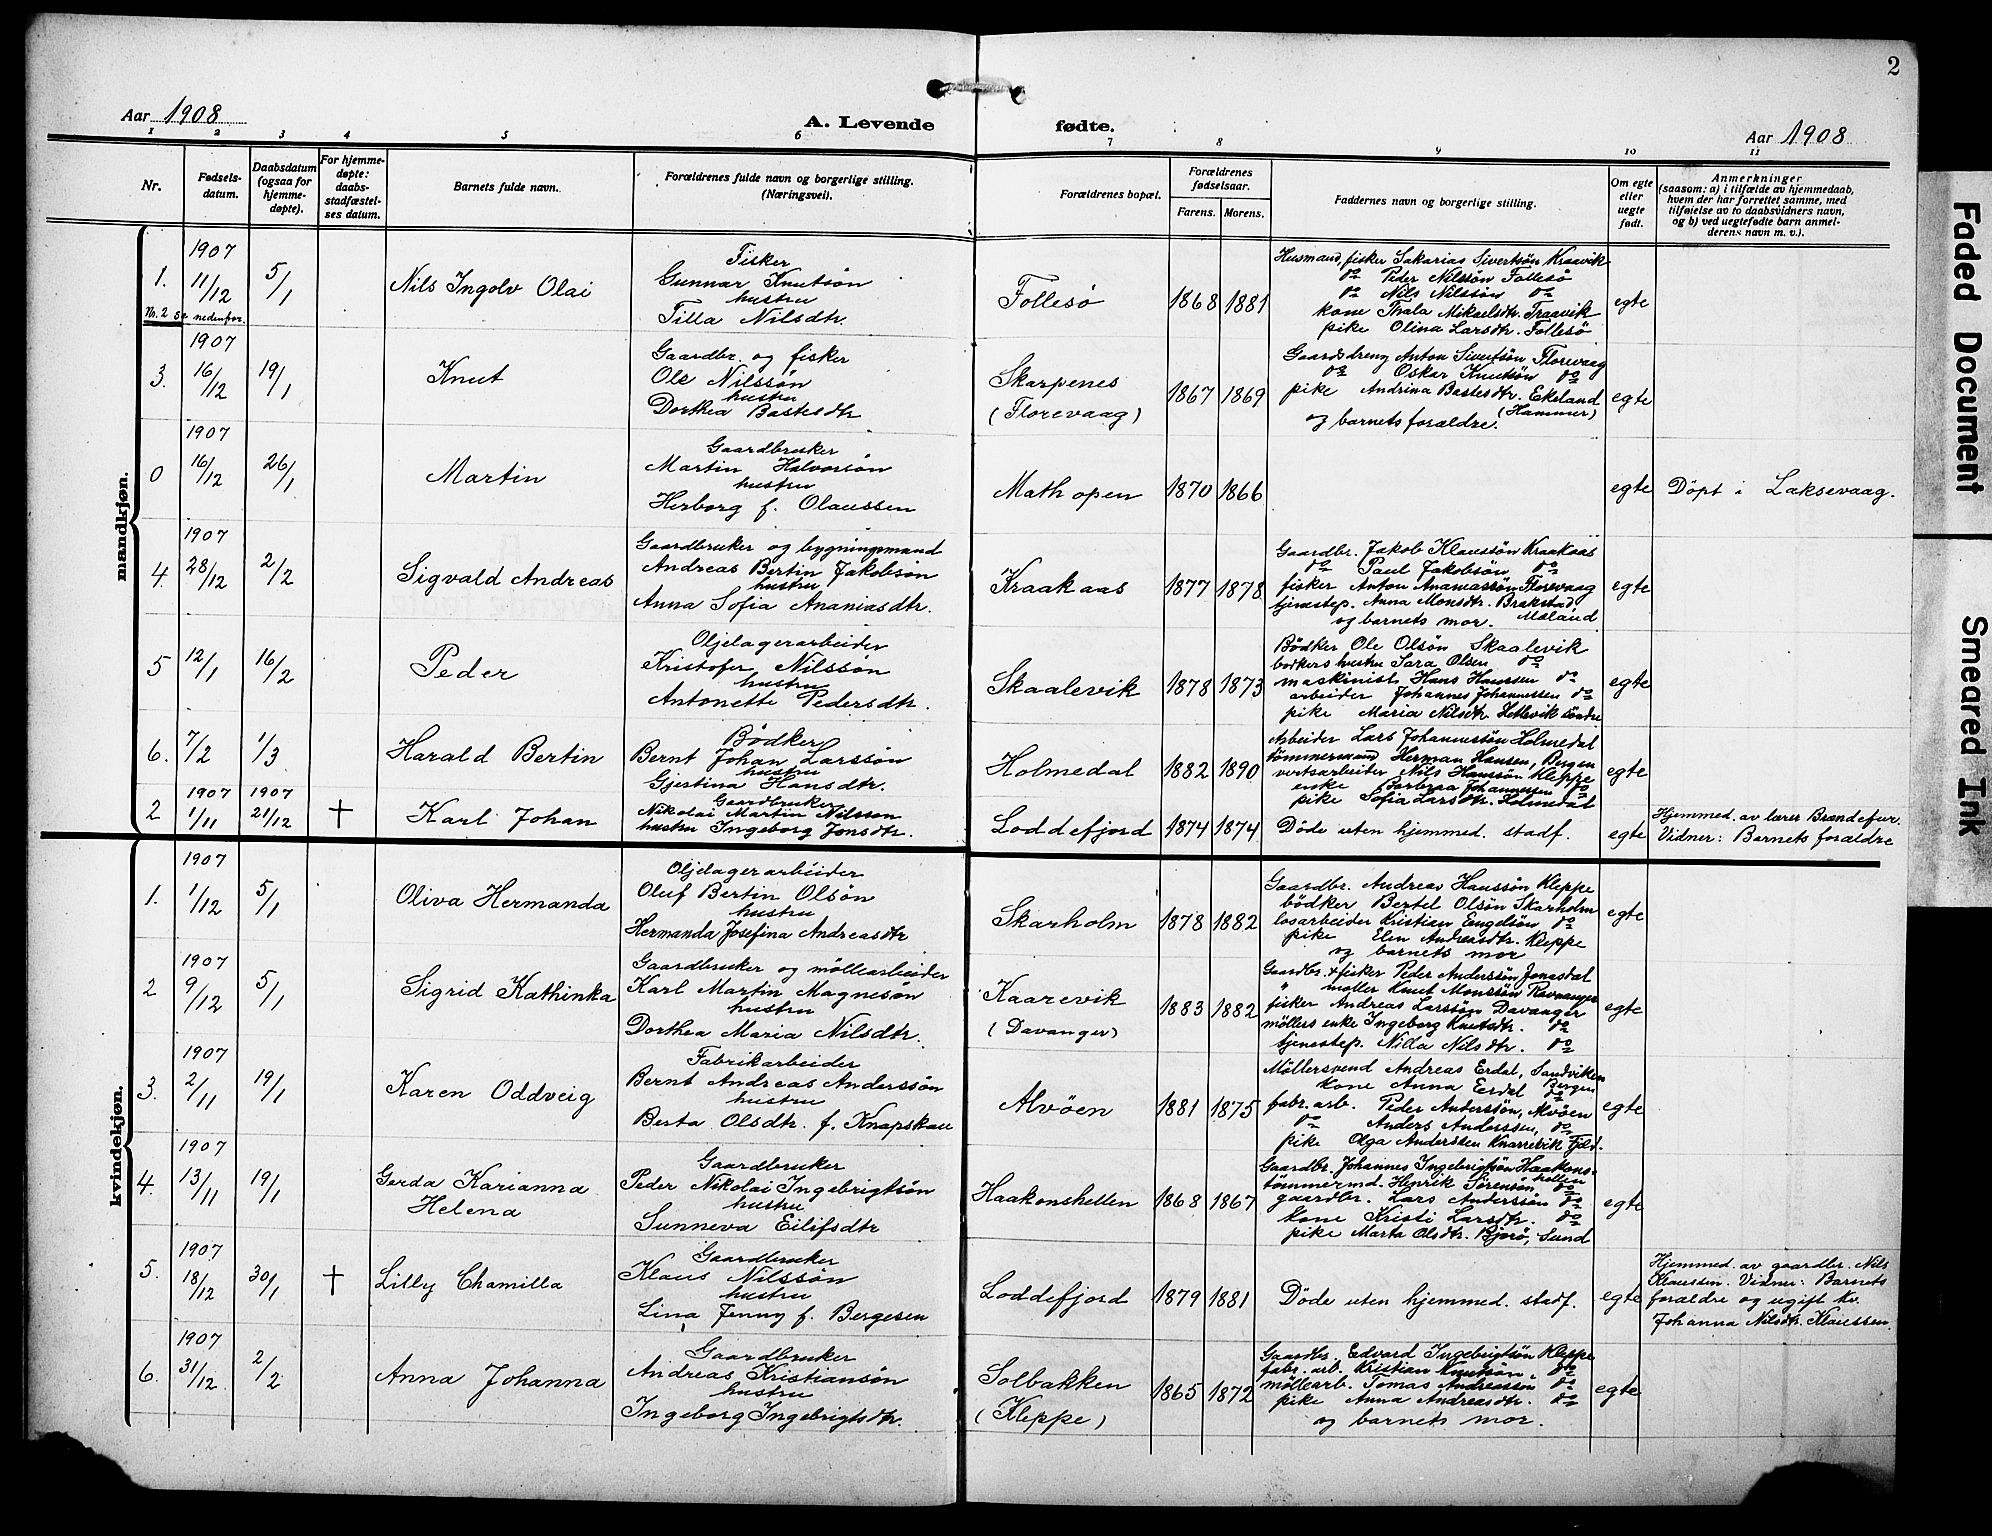 2
Aar 1908
A. Levende fødte.
Aar 1908
1 2 3 4 5 6 7 8 9 10 11
Nr.
Fødsels-
datum.
Daabsdatum
(ogsaa for
hjemme-
døpte).
For hjemme-
døpte:
daabs-
stadfæstel-
ses datum.
Barnets fulde navn.
Forældrenes fulde navn og borgerlige stilling.
(Næringsvei).
Forældrenes bopæl.
Forældrenes
fødselsaar.
Farens. Morens.
Faddernes navn og borgerlige stilling.
Om egte
eller
uegte
født.
Anmerkninger
(saasom: a) i tilfælde av hjemmedaab,
hvem der har forrettet samme, med
tilføielse av to daabsvidners navn,
og b) ved uegtefødte barn anmel-
derens navn m. v.).
mandkjøn.
1.
1907
11/12
5/1
No. 2 se nedenfor.
Nils Ingolv Olai
Fisker
Gunnar Knutsön
hustru
Tilla Nilsdtr.
Follesö
1868 1881
Husmand, fisker Sakarias Sivertsön Kraavik
do Peder Nilssön Follesö
do Nils Nilssön do
kone Thala Mikaelsdtr. Traavik
pike Olina Larsdtr. Follesö
egte
3.
1907
16/12
19/1
Knut
Gaardbr. og fisker
Ole Nilssön
hustru
Dorthea Bastesdtr
Skarpenes
(Florevaag)
1867 1869
Gaardsdreng Anton Sivertsön Florevaag
do Oskar Knutsön do
pike Andrina Bastesdtr. Ekeland
(Hammer)
og barnets forældre.
egte
0
1907
16/12
26/1
Martin
Gaardbruker
Martin Halvorsön
hustru
Herborg f. Olaussen
Mathopen
1870 1866
egte
Döpt i Laksevaag.
4.
1907
28/12
2/2
Sigvald Andreas
Gaardbruker og bygningsmand
Andreas Bertin Jakobsön
hustru
Anna Sofia Ananiasdtr.
Kraakaas
1877 1878
Gaardbr. Jakob Klaussön Kraakaas
do Paul Jakobsön do
fisker Anton Ananiassön Florevaag
tjenestep. Anna Monsdtr. Brakstad
og barnets mor. Mæland
egte
5
12/1
16/2
Peder
Oljelagerarbeider
Kristofer Nilssön
hustru
Antonette Pedersdtr.
Skaalevik
1878 1873
Bödker Ole Olsön Skaalevik
bödkers hustru Sara Olsen do
maskinist Hans Hanssen do
arbeider Johannes Johannessen do
pike Maria Nilsdtr. Hetlevik söndre
egte
6.
7/2
1/3
Harald Bertin
Bödker
Bernt Johan Larssön
hustru
Gjertina Hansdtr.
Holmedal
1882 1890
Arbeider Lars Johannessön Holmedal
tömmermand Herman Hansen, Bergen
verftsarbeider Nils Hanssön Kleppe
enke Barbraa Johannessen do
pike Sofia Larsdtr. Holmedal
egte
2
1907
1/11
1907
21/12
†
Karl Johan
Gaardbruker
Nikolai Martin Nilssen
hustru Ingeborg Jonsdtr.
Loddefjord
1874 1874
Döde uten hjemmed. stadf.
egte
Hjemmed. av lærer Brændefur.
Vidner: Barnets forældre
kvindekjøn.
1.
1907
1/12
5/1
Oliva Hermanda
Oljelagerarbeider
Oluf Bertin Olsön
hustru
Hermanda Josefina Andreasdtr
Skarholm
1878 1882
Gaardbr. Andreas Hanssön Kleppe
bödker Bertel Olsön Skarholm
losarbeider Kristian Engelsön do
pike Elen Andreasdtr. Kleppe
og barnets mor
egte
2
1907
9/12
5/1
Sigrid Kathinka
Gaardbruker og möllearbeider
Karl Martin Magnesön
hustru
Dorthea Maria Nilsdtr.
Kaarevik
(Davanger)
1883 1882
Gaardbr. + fisker Peder Anderssön Jonasdal
" möller Knut Monssön Ravnanger
fisker Andreas Larssön Davanger
möllers enke Ingeborg Knutsdtr. do
tjenestep. Nilla Nilsdtr. do
egte
3.
1907
2/11
19/1
Karen Oddveig
Fabrikarbeider
Bernt Andreas Anderssön
hustru
Berta Olsdtr. f. Knapskau
Alvöen
1881 1875
Möllersvend Andreas Erdal, Sandviken
kone Anna Erdal Bergen do
fabr. arb. Peder Anderssön, Alvöen
do Anders Anderssen, do
pike Olga Anderssen Knarrevik Fjeld.
egte
4.
1907
13/11
19/1
Gerda Karianna
Helena
Gaardbruker
Peder Nikolai Ingebrigtsön
hustru
Sunneva Eilifsdtr
Haakonshellen
1868 1867
Gaardbr. Johannes Ingebrigtsön Haakons-
hellen
tömmermd. Henrik Sörensön do
gaardbr. Lars Anderssön do
kone Kristi Larsdtr. do
pike Marta Olsdtr. Bjorö, Sund
egte
5.
1907
18/12
30/1
†
Lilly Chamilla
Gaardbruker
Klaus Nilssön
hustru
Lina Jenny f. Bergesen
Loddefjord
1879 1881
Döde uten hjemmed. stadf.
egte
Hjemmed. av gaardbr. Nils
Klaussen. Vidner: Barnets
forældre og ugift kv.
Johanna Nilsdtr. Klaussen.
6.
1907
31/12
2/2
Anna Johanna
Gaardbruker
Andreas Kristiansön
hustru
Ingeborg Ingebrigtsdtr.
Solbakken
(Kleppe)
1865 1872
Gaardbr. Edvard Ingebrigtsön Kleppe
fabr. arb. Kristian Knutsön, do
möllearb. Tomas Andreassön do
pike Anna Andreasdtr. do
og barnets mor.
egte
Faded Document
Smeared Ink